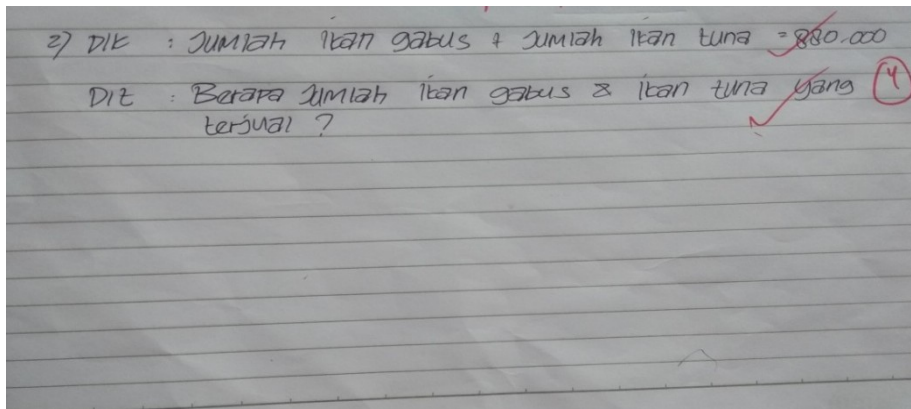 2) Dik : Jumlah ikan gabus + Jumlah ikan tuna = 880.000
Dit : Berapa Jumlah ikan gabus & ikan tuna yang
terjual ?
4